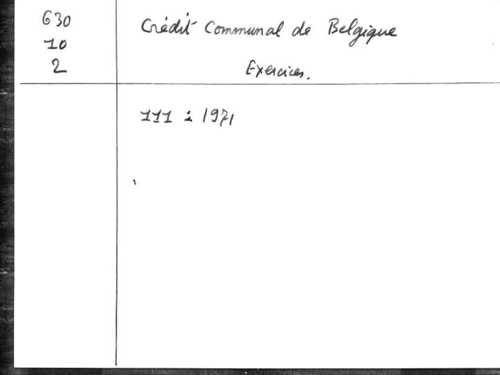 630
10
2
Crédit Communal de Belgique
Exercices.
111 : 1971